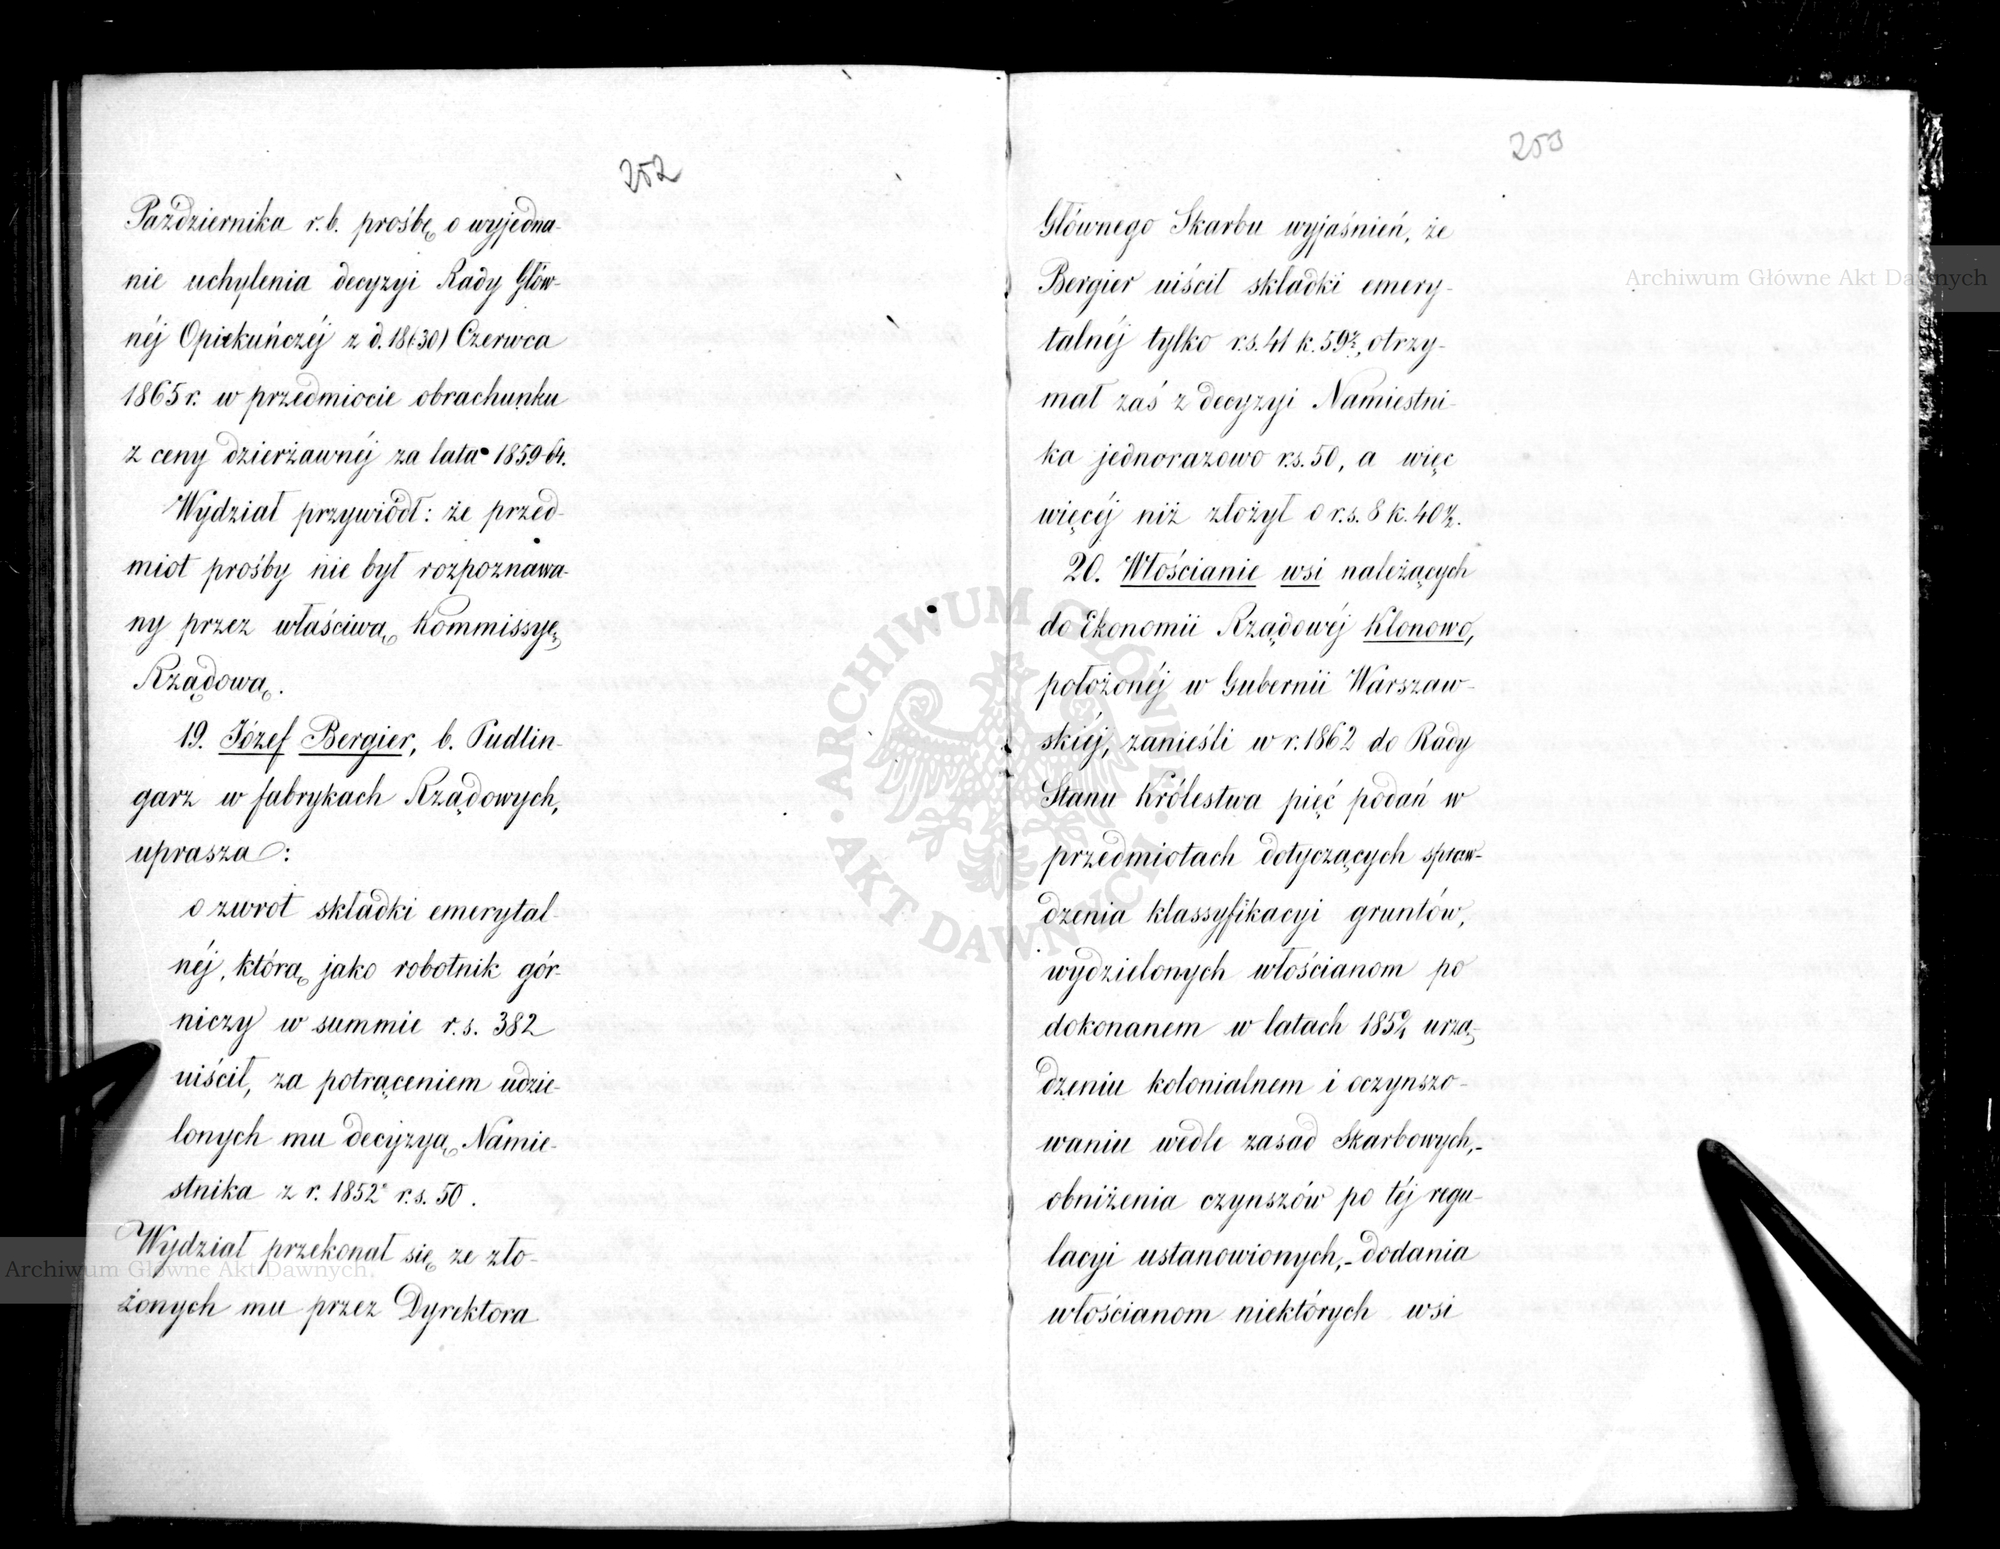 252
Października r.b. prośbę o wyjedna-
nie uchylenia decyzyi Rady Głów-
néj Opiekuńczéj z d. 18(30) Czerwca
1865 r. w przedmiocie obrachunku
z ceny dzierżawnéj za lata 1859-64.
Wydział przywiódł: że przed-
miot prośby nie był rozpoznawa-
ny przez właściwą Kommissyę
Rządową.
19. Józef Bergier, b. Pudlin-
garz w fabrykach Rządowych,
uprasza:
o zwrot składki emerytal-
néj, którą jako robotnik gór-
niczy w summie r.s. 382
uiścił, za potrąceniem udzie-
lonych mu decyzyą Namie-
stnika z r. 1852 r.s. 50.
Wydział przekonał się ze zło-
żonych mu przez Dyrektora
253
Głównego Skarbu wyjaśnień, że
Bergier uiścił składki emery-
talnéj tylko r.s. 41 k. 59½, otrzy-
mał zaś z decyzyi Namiestni-
ka jednorazowo r.s. 50, a więc
więcéj niż złożył o r.s. 8 k. 40½.
20. Włościanie wsi należących
do Ekonomii Rządowéj Klonowo,
położonéj w Gubernii Warszaw-
skiéj, zanieśli w r. 1862 do Rady
Stanu Królestwa pięć podań w
przedmiotach dotyczących spraw-
dzenia klassyfikacyi gruntów,
wydzielonych włościanom po
dokonanem w latach urzą-
dzeniu kolonialnem i oczynszo-
waniu wedle zasad Skarbowych,-
obniżenia czynszów po téj regu-
lacyi ustanowionych,- dodania
włościanom niektórych wsi
Archiwum Główne Akt Dawnych
Archiwum Główne Akt Dawnych.
ARCHIWUM GŁÓWNE AKT DAWNYCH